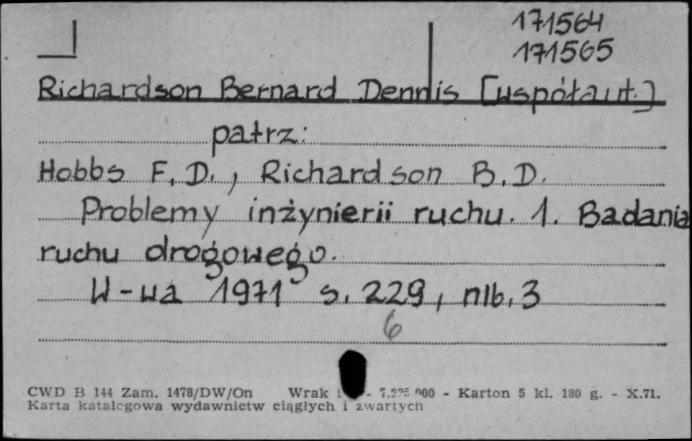 171564
171565
Richardson Bernard Dennis [współaut.]
patrz:
Hobbs F.D., Richardson B.D.
Problemy inżynierii ruchu. 1. Badania
ruchu drogowego.
W-wa 1971 s. 229, nlb. 3
6
CWD B 144 Zam. 1478/DW/On Wrak - 000 - Karton 5 kl. 180 g. - X.71.
Karta katalogowa wydawnictw ciągłych i zwartych